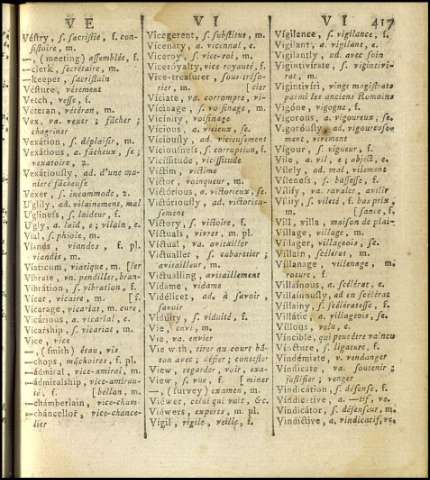 VE
VI
VI
417
Véstry, s. sacristie, f. con-
sistoire, m.
—, (meeting) assemblée, f.
—clerk, secrétaire, m.
—keeper, sacristain
Vésture, vêtement
Vetch, vesse, f.
Veteran, vétéran, m.
Vex, va. vexer ; fâcher ;
chagriner
Vexátion, s. déplaisir, m.
Vexátious, a. fâcheux, se ;
vexatoire, 2.
Vexátiously, ad. d'une ma-
niere fâcheuse
Véxer, s. incommode, 2.
Uglily, ad. vilainement, mal
Ugliness, s. laideur, f.
Ugly, a. laid, e ; vilain, e.
Vial, s. phiole, m.
Viands, viandes, f. pl.
viandes, m.
Viaticum, viatique, m. [ler
Vibrate, vn. pendiller, bran-
Vibrátion, s. vibration, f.
Vicar, vicaire, m. [f.
Vicarage, vicariat, m. cure,
Vicárious, a. vicarial, e.
Vicarship, s. vicariat, m.
Vice, vice
—, (smith) étau, vis
—chops, mâchoires, f. pl.
—ádmiral, vice-amiral, m.
—ádmiralship, vice-amirau-
té, f. [bellan, m.
—chámberlain, vice-cham-
—cháncellor, vice-chance-
lier
Vicegerent, s. substitut, m.
Vicenary, a. vicennal, e.
Viceroy, s. vice-roi, m.
Viceróyalty, vice royauté, f.
Vice-tréasurer, sous-tréso-
rier, m. [cier
Viciate, va. corrompre, vi-
Vicinage, s. voisinage, m.
Vicinity, voisinage
Vicious, a. vicieux, se.
Viciously, ad. vicieusement
Viciousness, s. corruption, f.
Vicissitude, vicissitude
Victim, victime
Victor, vainqueur, m.
Victórious, a. victorieux, se.
Victóriously, ad. victorieu-
sement
Victory, s. victoire, f.
Victuals, vivres, m. pl.
Victual, va. avitailler
Victualler, s. cabaretier ;
avitailleur, m.
Victualling, avitaillement
Vidame, vidame
Vidélicet, ad. à savoir,
savoir
Vidúity, s. viduité, f.
Vie, envi, m.
Vie, va. envier
Vie with, tirer au court bâ-
ton avec ; défier ; contester
View, regarder, voir, exa-
View, s. vue, f. [miner
—, (survey) examen, m.
Viéwer, celui qui voit, &c.
Viéwers, experts, m. pl.
Vigil, vigile, veille, f.
Vigilance, s. vigilance, f.
Vigilant, a. vigilant, e.
Vigilantly, ad. avec soin
Vigintivirate, s. vigintivi-
rat, m.
Vigintiviri, vingt magistrats
parmi les anciens Romains
Vigóne, vigogne, f.
Vigorous, a. vigoureux, se.
Vigorously, ad. vigoureuse-
ment, vivement
Vigour, s. vigueur, f.
Vile, a. vil, e ; abject, e.
Vilely, ad. mal, vilement
Vileness, s. bassesse, f.
Vilify, va. ravaler, avilir
Vility, s. vileté, f. bas prix,
m. [sance, f.
Vill, villa, maison de plai-
Village, village, m.
Villager, villageois, se.
Villain, scélérat, m.
Villanage, villenage, m.
roture, f.
Villainous, a. scélérat, e.
Villainously, ad. en scélérat
Villainy, s. scélératesse, f.
Villátic, a. villageois, se.
Villous, velu, e.
Vincible, qui peut être vaincu
Vincture, s. ligature, f.
Vindémiate, v. vendanger
Vindicate, va. soutenir ;
justifier ; venger
Vindicátion, s. défense, f.
Vindicative, a. —tif, ve.
Vindicátor, s. défenseur, m.
Vindictive, a. vindicatif, ve.